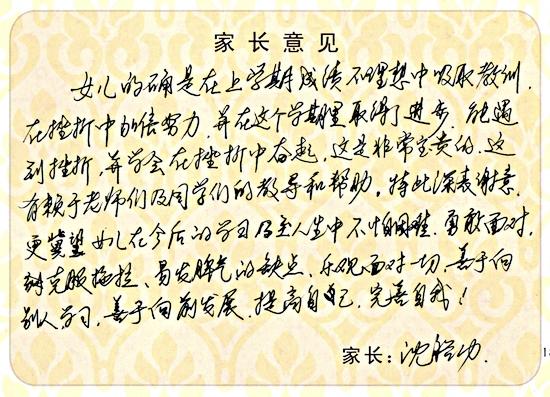 家长意见
女儿的确是在上学期成绩不理想中吸取教训,
在挫折中加倍努力,并在这个学期里取得了进步,能遇
到挫折,并学会在挫折中奋起,这是非常宝贵的,这
有赖于老师们及同学们的教导和帮助,特此深表谢意,
更冀望女儿在今后的学习乃至人生中不怕困难,勇敢面对,
能克服拖拉、易发脾气的缺点,乐观面对一切,善于向
别人学习,善于向前发展,提高自己,完善自我!
家长:沈